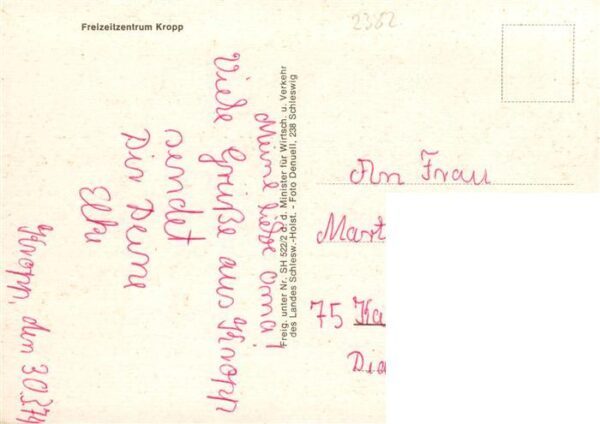 Freizeitzentrum Kropp
2382
Kropp, den 30.3.74
Meine liebe Oma!
Viele Grüße aus Kropp
sendet
Dir Deine
Elke
Freig. unter Nr. SH 522/2 d. d. Minister für Wirtsch. u. Verkehr
des Landes Schlesw.-Holst. - Foto Denuell, 238 Schleswig
An Frau
Mart
75 Ka
Dia